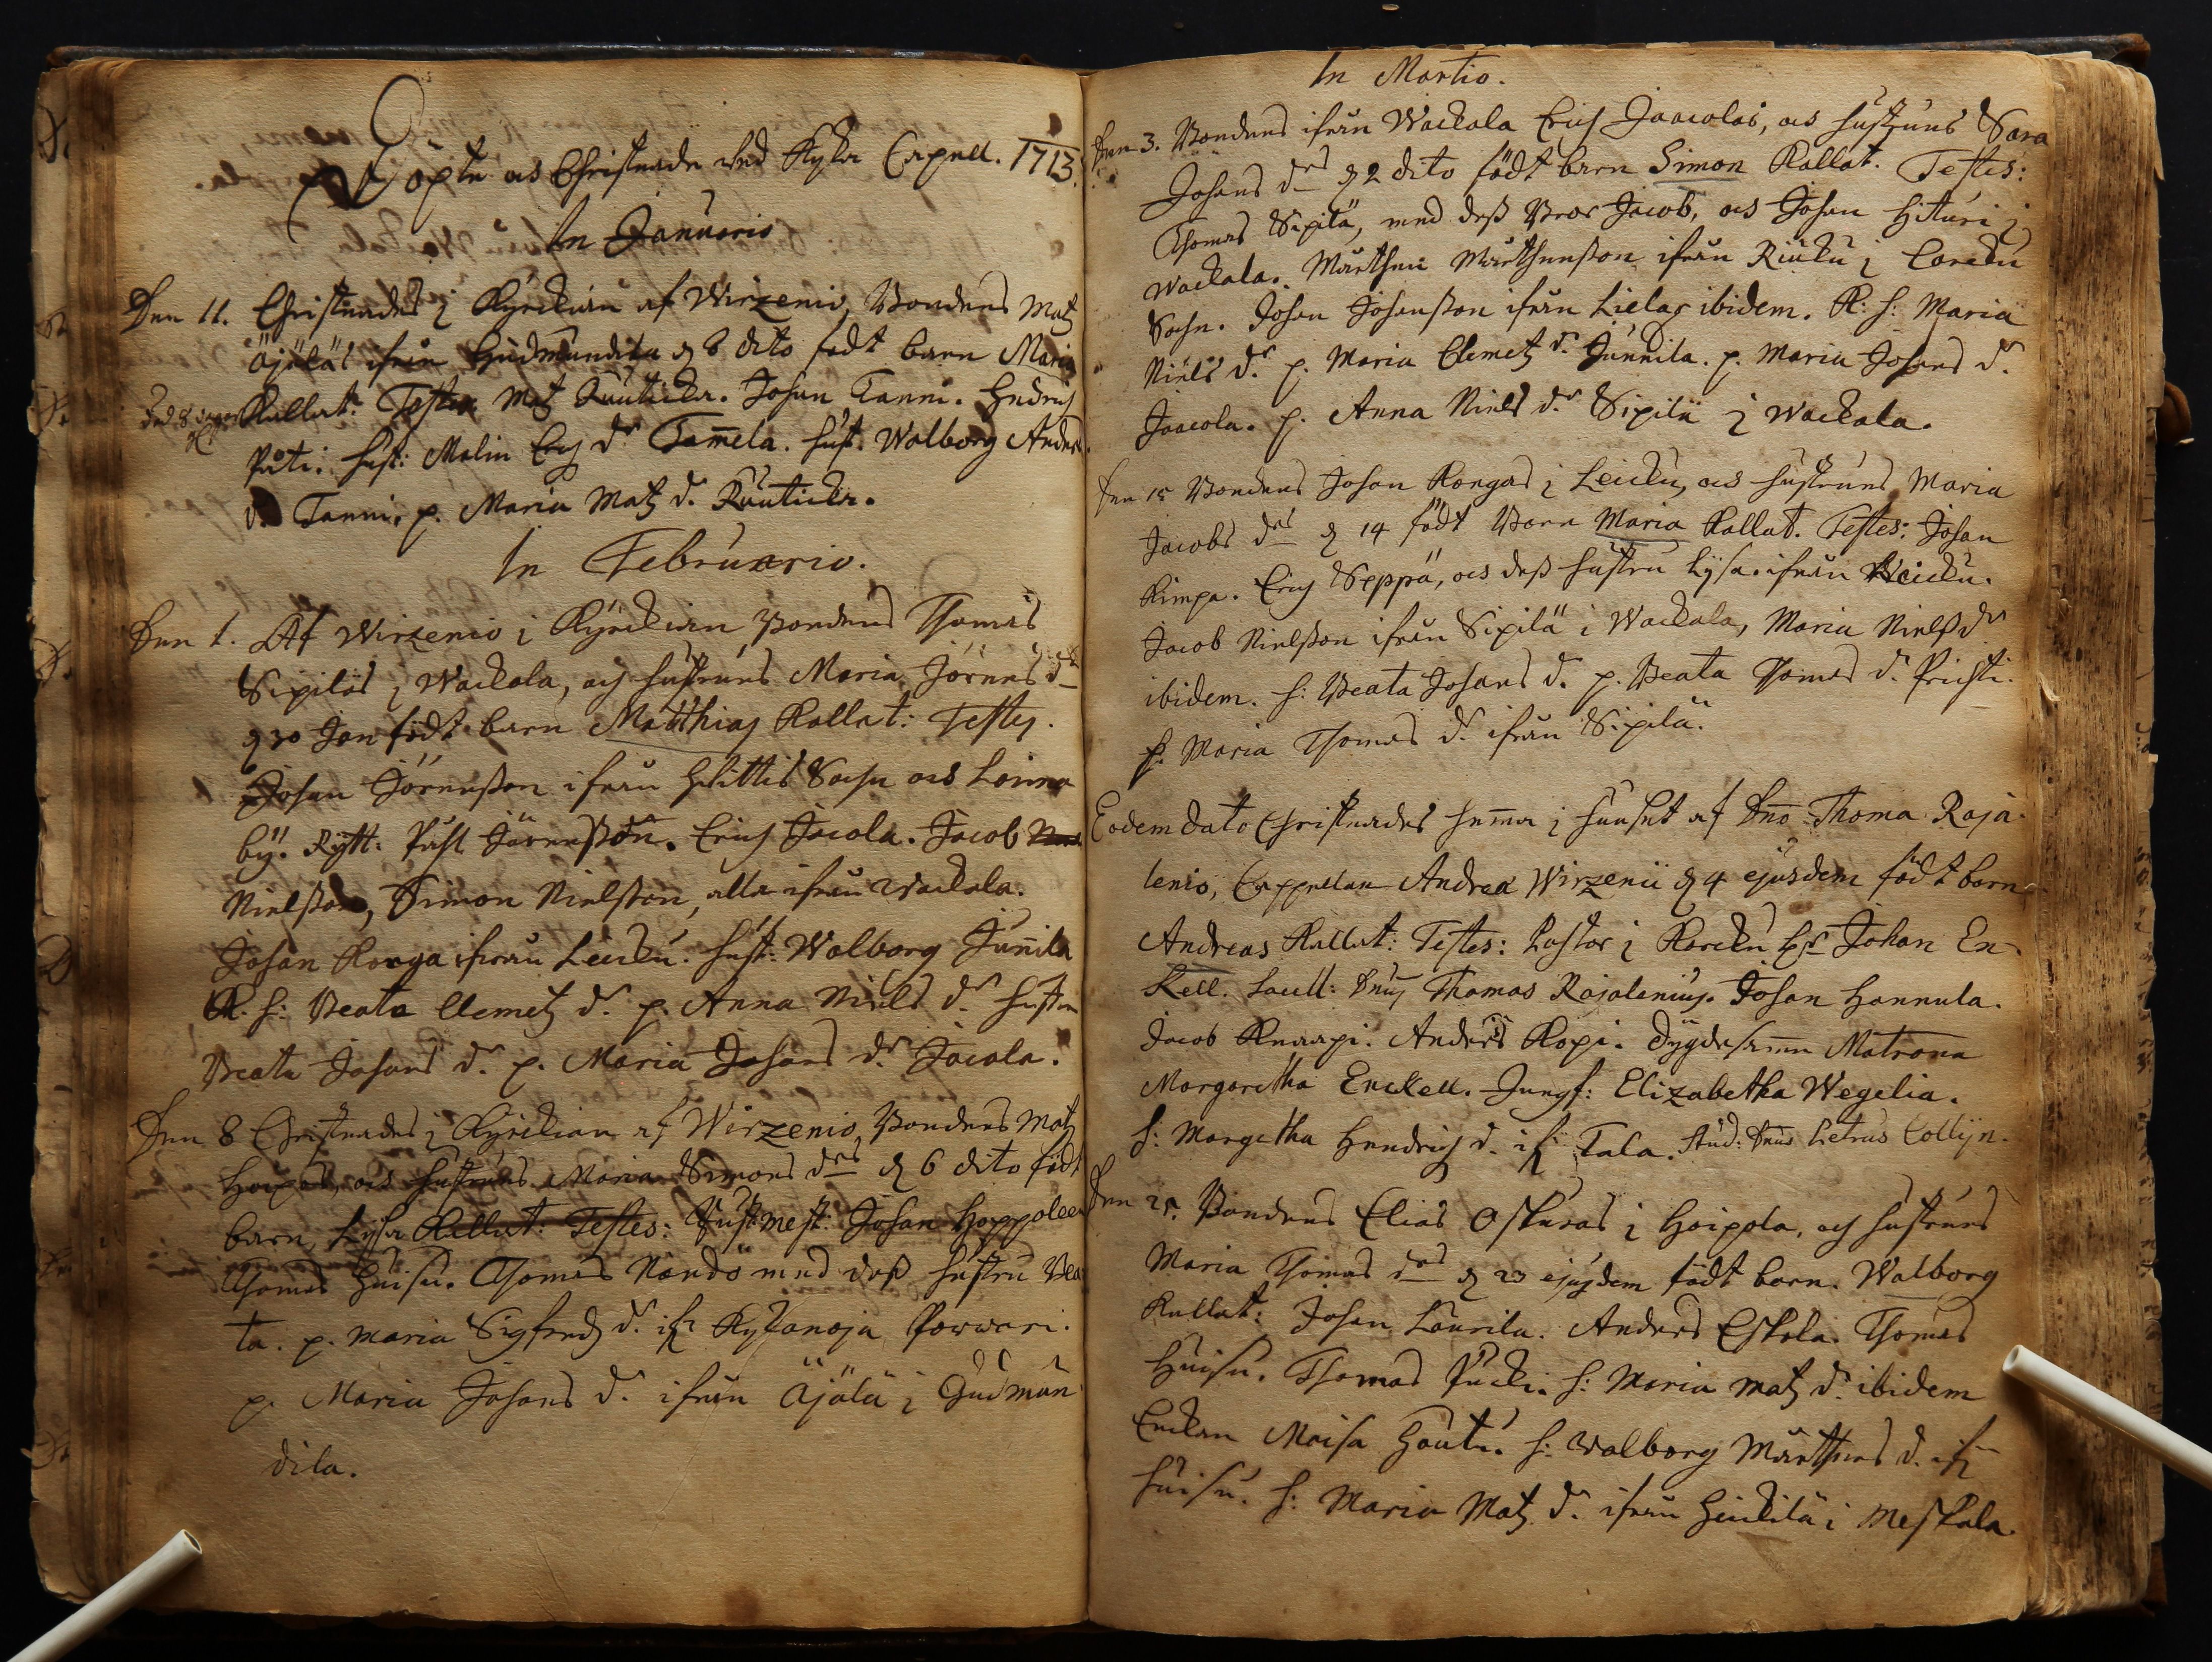 Döpte och Christnade wed Kyla Capell. 1713.
In Januario
Den 11. Christnades i Kyrckian af Wirzenio, Bondens Matz
Äjäläs ifrån Gudmundila d 8 dito födt barn Maria
Kallat. Testes Matz Ruuticka. Johan Tanni. Hendrich
Päti. hust: Malin Erichs dr Tam̄ela. hust. Walborg Anders
dr. Tanni. p. Maria Matz dr. Ruuticka.
In Februario.
Den 1. Af Wirzenio i Kyrckian Bondens Thomas
Sipiläs i Wackala, och hustruns Maria Jörens drs
d 30 Jan födt barn Matthias Kallat: Testes.
Johan Jörensson ifrån Hvittis Sochn och Loima
by. Rytt. Påhl Jörensson. Erich Jacola. Jacob
Nielsson, Simon Nielsson, alla ifrån Wackala.
Johan Konga ifrån Leicku. hust: Walborg Jun̄ila
R. h: Beata Clemetz dr. p. Anna Niels dr. hustru
Beata Johans dr. p. Maria Johans dr. Jacola.
Den 8 Christnades i Kyrckian af Wirzenio, Bondens Matz
och hustruns Maria Simons drs d 6 dito födt
barn, Lysa Kallat: Testes: Johan Hoppolee
Thomas Huisu. Thomas Nändö med dess hustru Bea
ta. p. Maria Sigfredz dr. ifr Kylänoja Porwari.
p. Maria Johans dr. ifrån Äjälä i Gudmun
dila.
In Martio.
Den 3. Bondens ifrån Wackala Erich Jaacolas, och hustruns Sara
Johans drs d 2 dito födt barn Simon Kallat. Testes:
Thomas Sipilä, med dess Bror Jacob, och Johan Hituri i
Wackala. Mårthen Mårthensson ifrån Riuku i Carcku
Sochn. Johan Johansson ifrån Lielax ibidem. R: h: Maria
Niels dr. p. Maria Clemetz dr. Junnila. p. Maria Johans dr.
Jaacola. p. Anna Niels dr. Sipilä i Wackala.
Den 15 Bondens Johan Kongas i Leicku, och hustruns Maria
Jacobs drs d 14 födt Barn Maria Kallat. Testes: Johan
Kimpa. Erich Seppä, och dess hustru Lysa ifrån Leicku.
Jacob Nielsson ifrån Sipilä i Wackala, Maria Niels dr
ibidem. h: Beata Johans dr. p. Beata Thomas dr. Prihti.
p. Maria Thomas dr. ifrån Sipilä.
Eodem dato Christnades hem̄a i huuset af Dn̄o Thoma Raja-
lenio, Cappellan Andreæ Wirzenii d 4 ejusdem födt barn
Andreas Kallat: Testes: Pastor i Karcku Hr Johan En-
Kell. Sacell: Dn̄s Thomas Rajalenius. Johan Hannula.
Jacob Knaapi. Anders Kopi. Dygdesam̄e Matrona
Margaretha Enckell. Jungf: Elizabetha Wegelia.
h: Margetha Hendrichs dr. ifr Tala. Stud: Dn̄s Petrus Collijn.
Den 25. Bondens Elias Oskaras i Hoippola, och hustruns
Maria Thomas drs d 23 ejusdem födt barn. Walborg
Kallat: Johan Laurila. Anders Eskola. Thomas
Huisu. Thomas Pucki. h: Maria Matz dr. ibidem
Enckan Maisa Hautu. h: Walborg Mårthens dr. ifr
Huisu. h: Maria Matz dr. ifrån Heickilä i Meskala.